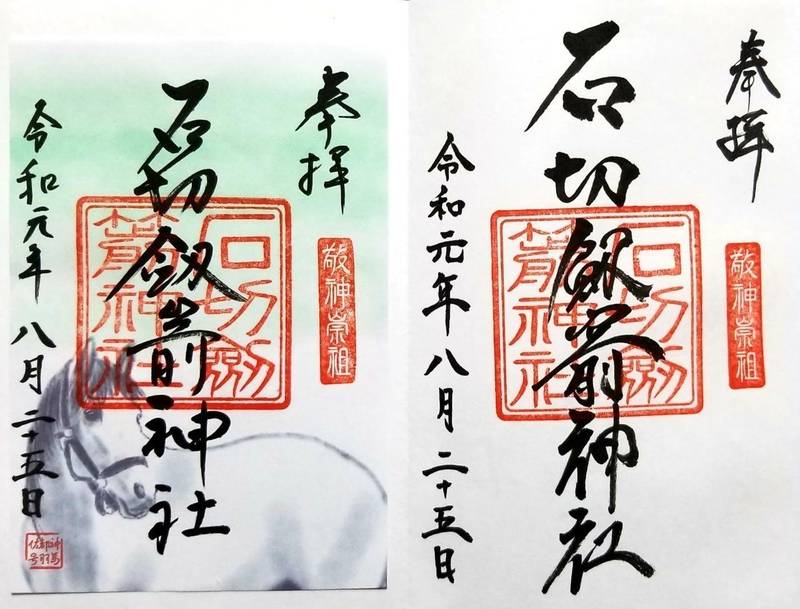 奉拝
敬神崇祖
石切劔箭神社
石切劔
箭神社
令和元年八月二十五日
奉拝
敬神崇祖
石切劔箭神社
石切劔
箭神社
令和元年八月二十五日